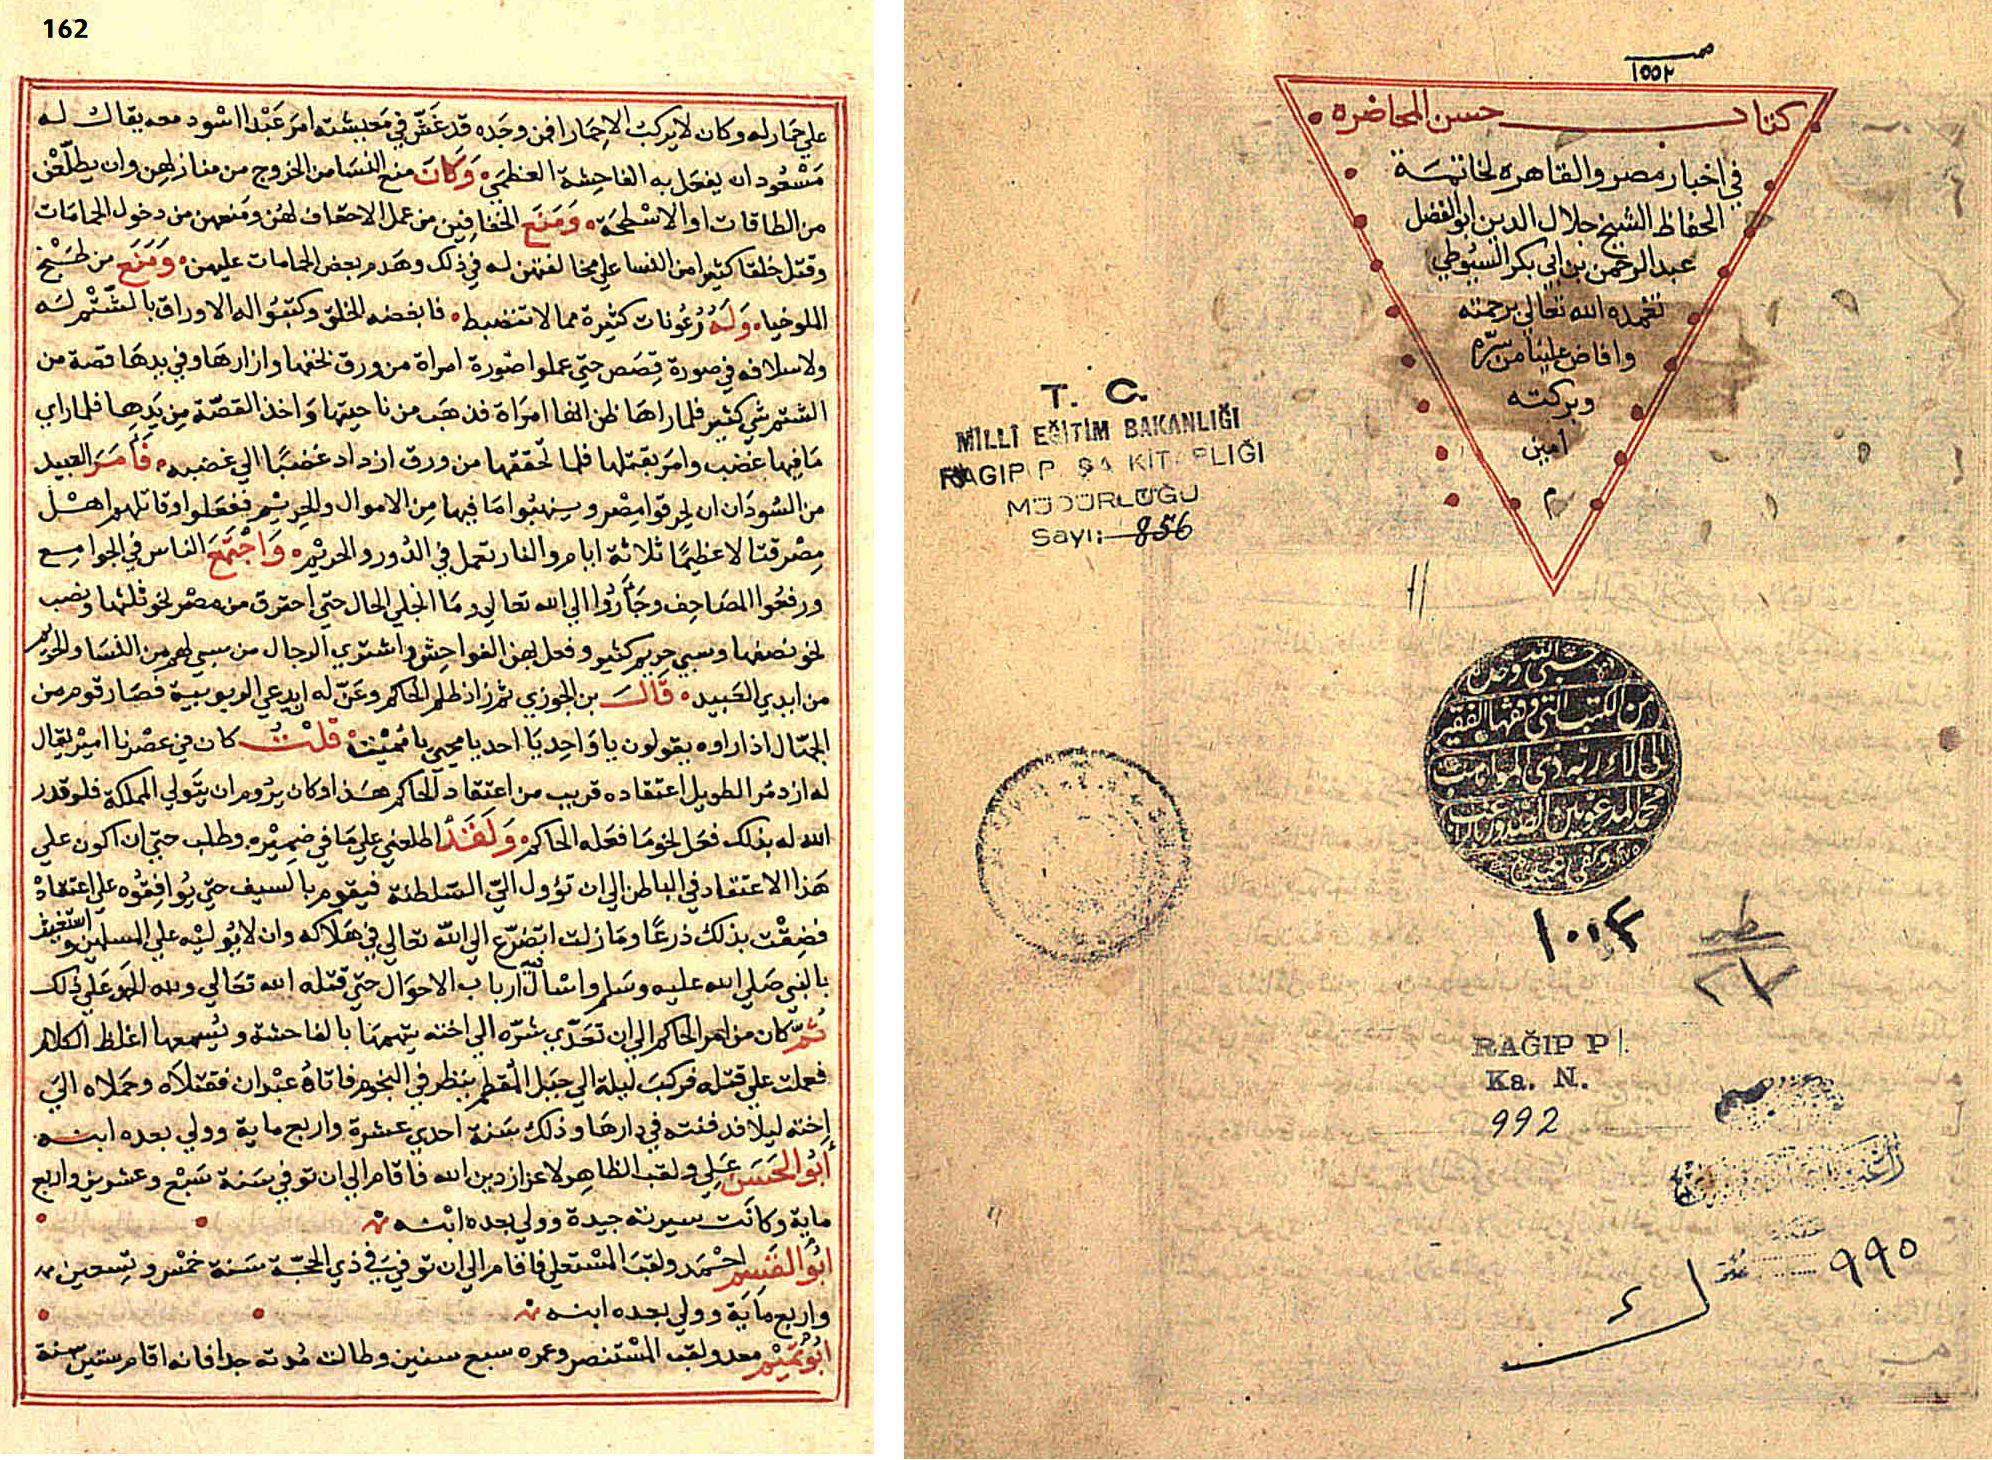 162
علي حمار له وكان لا يركب الا حمارا فمن وجده قد غش في معيشته امر عبدا اسود معه يقال له
مسعود ان يفعل به الفاحشة العظمي وكان منع النسا من الخروج من منازلهن وان يطلعن
من الطاقات او الاسطحة ومنع الخفافين من عمل الاخفاف لهن ومنعهن من دخول الحمامات
وقتل خلقا كثيرا من النسا علي مخالفتهن له في ذلك وهدم بعض الحمامات عليهن ومنع من طبخ
الملوخيا وله رعونات كثيرة مما لا تنضبط فابغضه الخلق وكتبوا له الاوراق بالشتم له
ولاسلافه في صورة قصص حتي عملوا صورة امراة من ورق بخفها وازارها وفي يدها قصة من
الشتم شي كثير فلما راها ظن انها امراة فذهب من ناحيتها واخذ القصة من يدها فلما راي
ما فيها غضب وامر بقتلها فلما تحققها من ورق ازداد غضبا الي غضبه فامر العبيد
من السودان ان يحرقوا مصر وينهبوا ما فيها من الاموال والحريم ففعلوا وقاتلهم اهل
مصر قتالا عظيما ثلاثة ايام والنار تعمل في الدور والحريم واجتمع الناس في الجوامع
ورفعوا المصاحف وجاروا الي الله تعالي وما انجلي الحال حتي احترق من مصر نحو ثلثها ونهب
نحو نصفها وسبي حريم كثير وفعل بهن الفواحش واشتري الرجال من سبي لهم من النسا والحريم
من ايدي العبيد قال بن الجوزي ثم زاد ظلم الحاكم وعن له ان يدعي الربوبية فصار قوم من
الجهال اذا راوه يقولون يا واحد يا احد يا محيي يا مميت قلت كان في عصرنا امير يقال
له ازدمر الطويل اعتقاده قريب من اعتقاد الحاكم هذا وكان يروم ان يتولي المملكة فلو قدر
الله له بذلك فعل نحو ما فعله الحاكم ولقد اطلعني علي ما في ضميره وطلب حتي ان اكون علي
هذا الاعتقاد في الباطن الي ان تؤول اليه السلطنة فيقوم بالسيف حتي يوافقوه علي اعتقاده
فضقت بذلك ذرعا وما زلت اتضرع الي الله تعالي في هلاكه وان لا يوليه علي المسلمين واستغيث
بالنبي صلي الله عليه وسلم واسال ارباب الاحوال حتي قتله الله تعالي ولله الحمد علي ذلك
ثم كان من امر الحاكم الي ان تعدي شره الي اخته يتهمها بالفاحشة ويسمعها اغلظ الكلام
فعملت علي قتله فركب ليلة الي جبل المقطم ينظر في النجوم فاتاه عبدان فقتلاه وحملاه الي
اخته ليلا فدفنته في دارها وذلك سنة احدي عشرة واربع ماية وولي بعده ابنه
ابو الحسن علي ولقب الظاهر لاعزاز دين الله فاقام الي ان توفي سنة سبع وعشرين واربع
ماية وكانت سيرته جيدة وولي بعده ابنه
ابو القسم احمد ولقب المستعلي فاقام الي ان توفي في ذي الحجة سنة خمس وتسعين
واربع ماية وولي بعده ابنه
ابو تميم معد ولقب المستنصر وعمره سبع سنين وطالت مدته جدا فانه اقام ستين سنة
١٥٥٢
كتاب حسن المحاضره
في اخبار مصر والقاهره لخاتمة
الحفاظ الشيخ جلال الدين ابو الفضل
عبد الرحمن بن ابي بكر السيوطي
تغمده الله تعالي برحمته
وافاض علينا من سره
وبركته
امين
م
T. C.
MİLLİ EĞİTİM BAKANLIĞI
RAGIP P ŞA KİT PLIĞI
MÜDÜRLÜĞÜ
Sayı: 856
حسبي الله وحده
من الكتب التي وقفها الفقير
الى آلاء ربه ذي المواهب
محمد المدعو بين الصدور بالراغب
RAĞIP P.
Ka. N.
992
٩٩٥